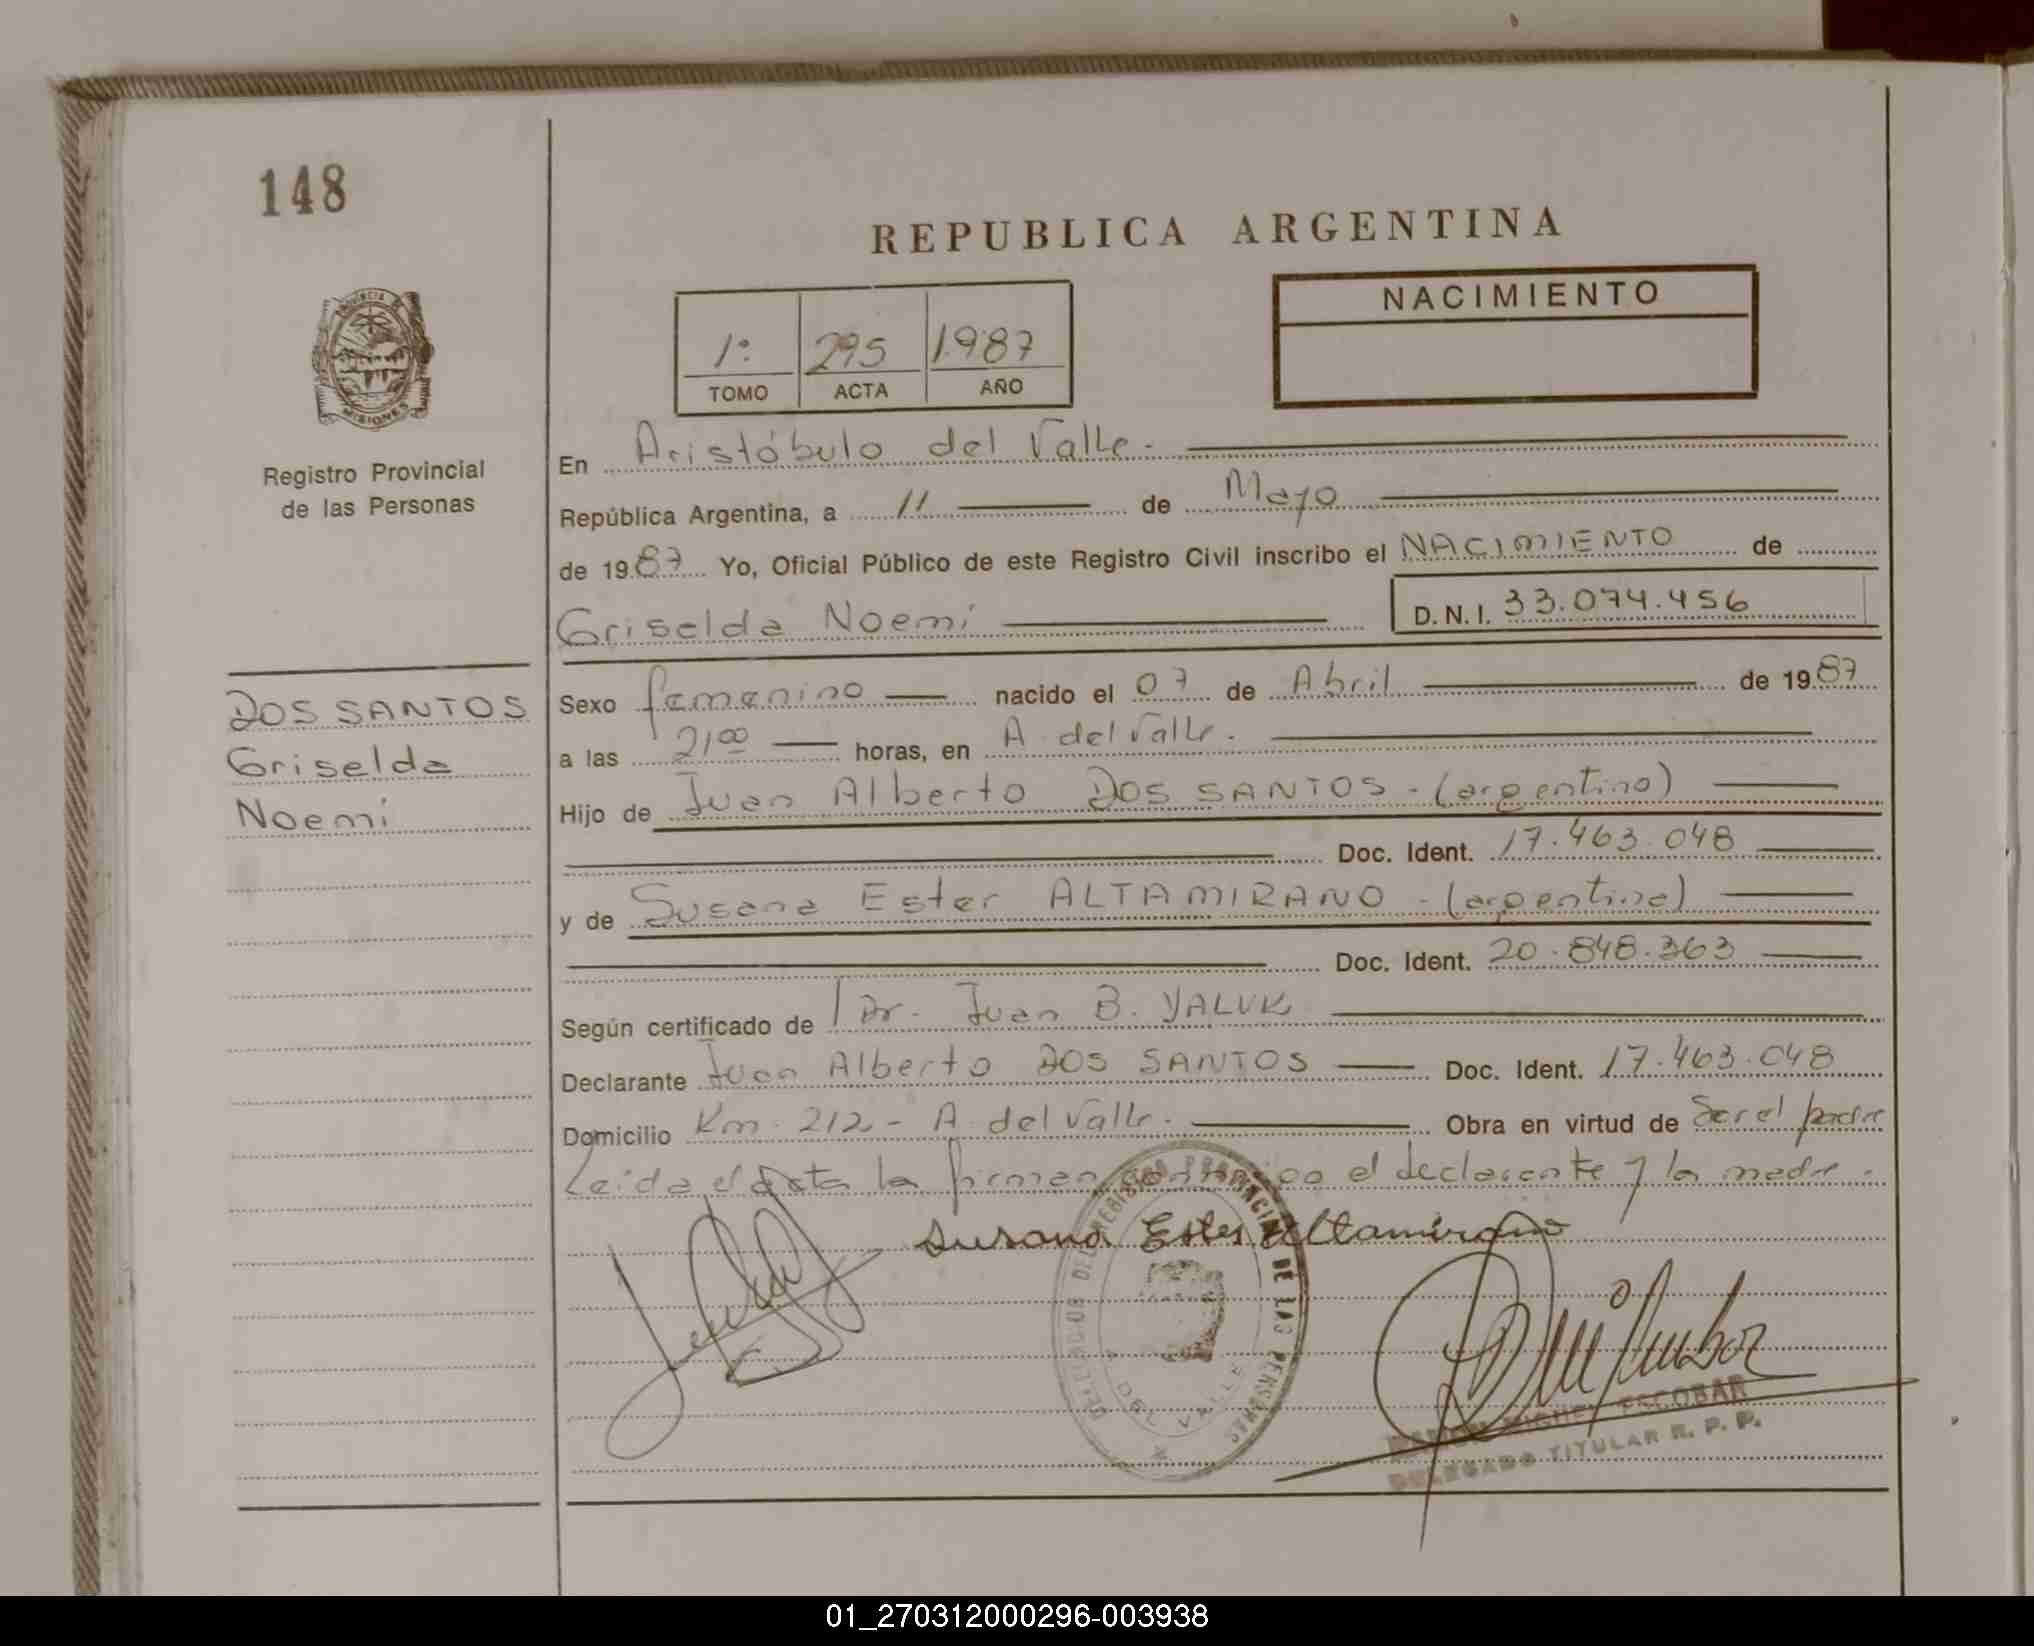 148
REPUBLICA ARGENTINA
NACIMIENTO
1º 295 1987
TOMO ACTA AÑO
PROVINCIA DE MISIONES
Registro Provincial
de las Personas
En Aristóbulo del Valle.
República Argentina, a 11 de Mayo
de 1987 Yo, Oficial Público de este Registro Civil inscribo el NACIMIENTO de
Griselda Noemí D.N.I. 33.074.456
DOS SANTOS
Griselda
Noemí
Sexo femenino nacido el 07 de Abril de 1987
a las 21 00 horas, en A. del Valle.
Hijo de Juan Alberto DOS SANTOS - (argentino)
Doc. Ident. 17.463.048
y de Susana Ester ALTAMIRANO - (argentina)
Doc. Ident. 20.848.363
Según certificado de Dr. Juan B. YALUK
Declarante Juan Alberto DOS SANTOS Doc. Ident. 17.463.048
Domicilio Km. 212 - A. del Valle. Obra en virtud de Ser el padre
Leída el Acta la firman conmigo el declarante y la madre.
Susana Ester Altamirano
DEL REGISTRO PROVINCIAL DE LAS PERSONAS
A. DEL VALLE
RAMON MIGUEL ESCOBAR
DELEGADO TITULAR R. P. P.
01_270312000296-003938